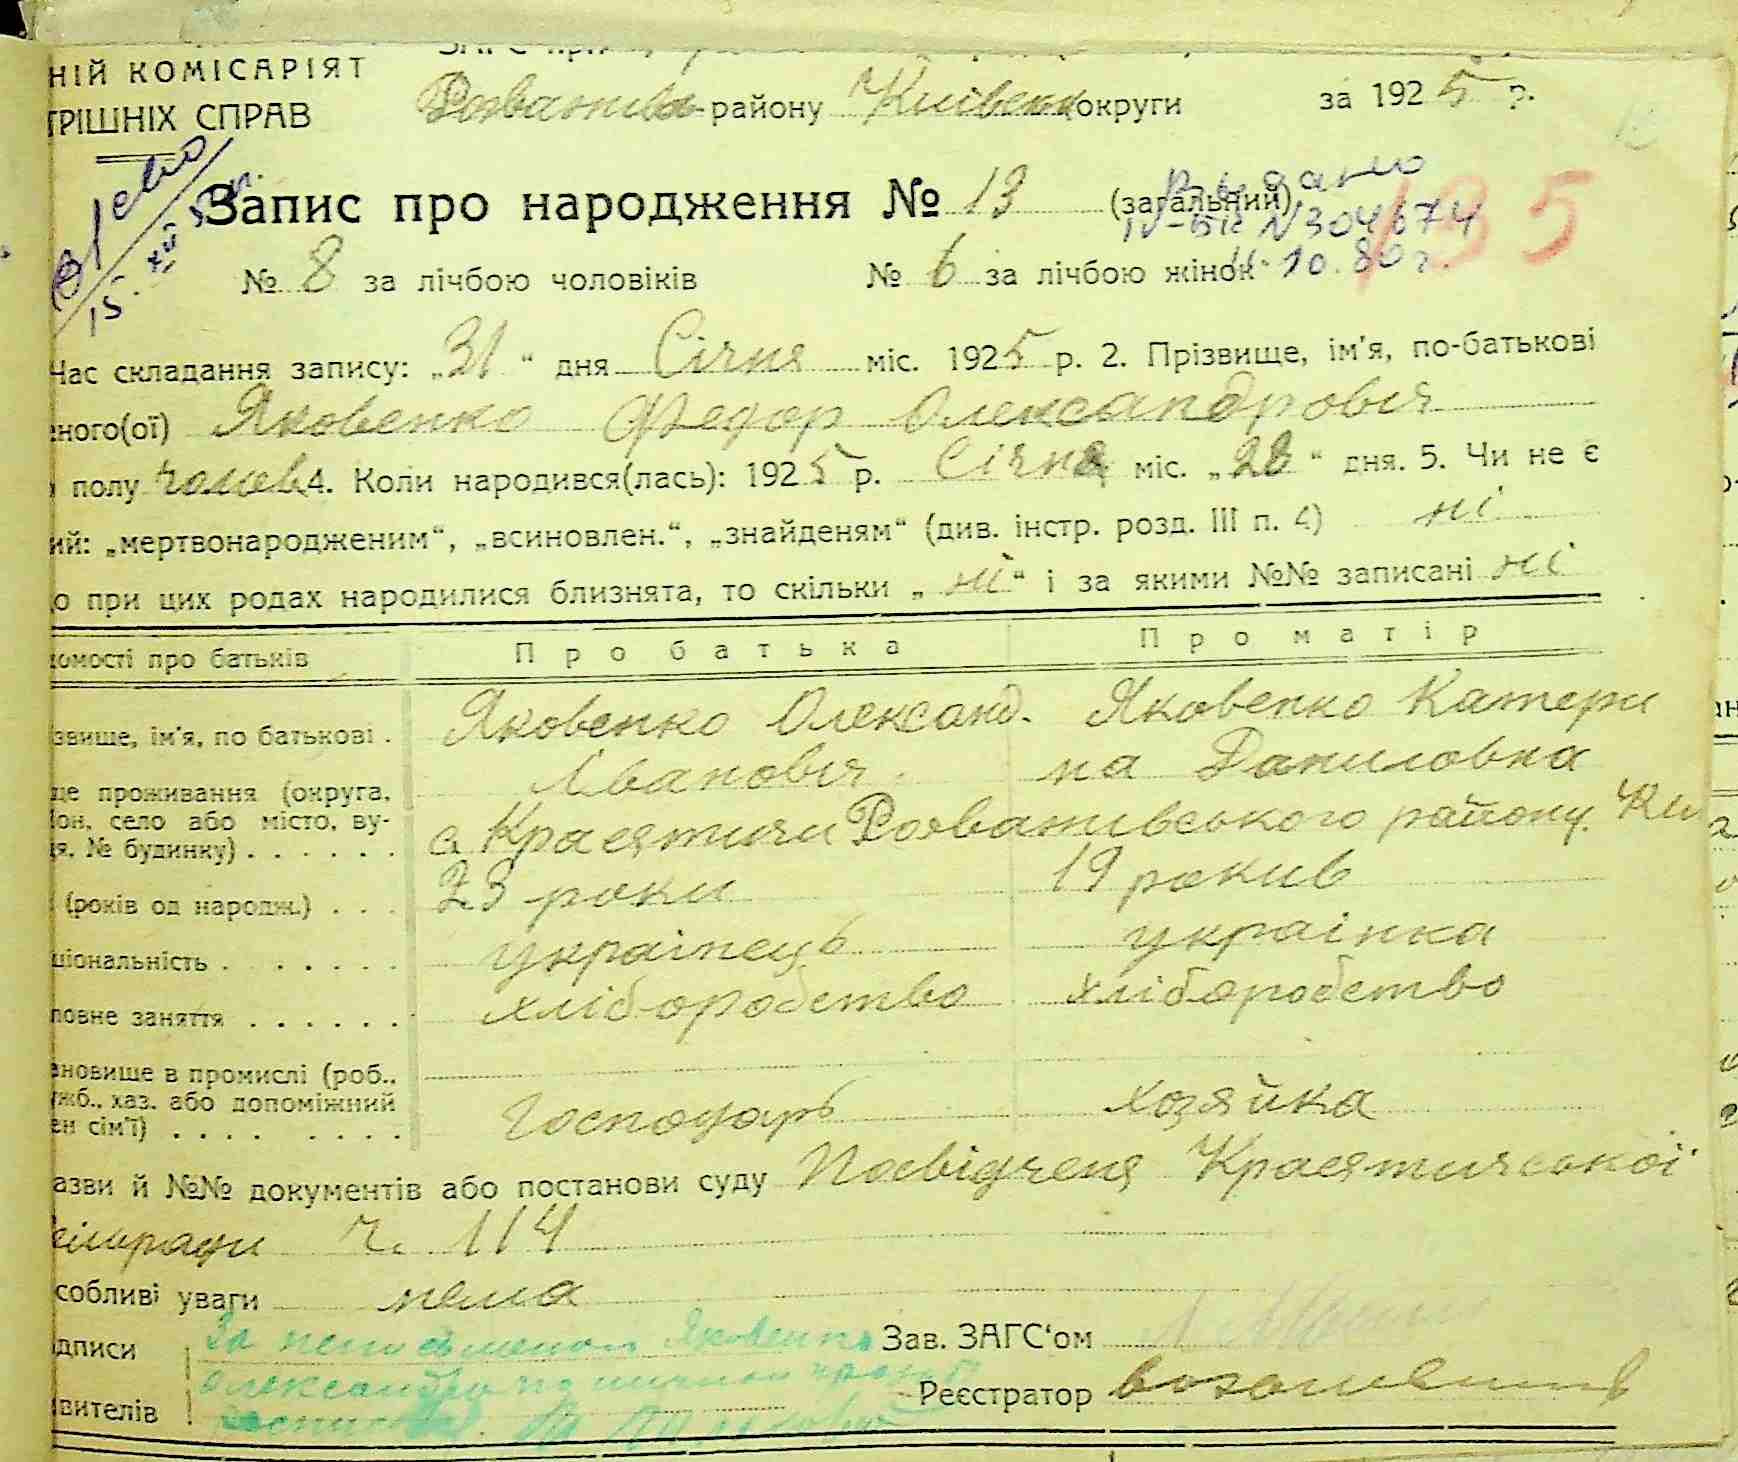 НІЙ КОМІСАРІЯТ
ТРІШНІХ СПРАВ
району Київськ округи за 1925 р.
Запис про народження № 13 (загальний)
Видано
IV-БК N304674
11.10.80 г.
135
№ 8 за лічбою чоловіків № 6 за лічбою жінок
Час складання запису: „31“ дня Січня міс. 1925 р. 2. Прізвище, ім'я, по-батькові
еного(ої) Яковенко Федор Олександровіч
полу чолов. 4. Коли народився(лась): 1925 р. Січня міс. „28“ дня. 5. Чи не є
ий: „мертвонародженим“, „всиновлен.“, „знайденям“ (див. інстр. розд. III п. 4) ні
о при цих родах народилися близнята, то скільки „ні“ і за якими №№ записані ні
омості про батьків Про батька Про матір
звище, ім'я, по батькові . Яковенко Олександ. Яковенко Катери
Івановіч. на Даниловна
це проживання (округа,
он, село або місто, ву-
я, № будинку) . . . . . . с. Красятичи Розватівського району. Ки
(років од народж.) . . . 23 роки 19 рокив
ціональність . . . . . . . українець українка
ловне заняття . . . . . . хліборобство хліборобство
ановище в промислі (роб.,
ужб., хаз. або допоміжний
ен сім'ї) . . . . . . . . Господарь хозяйка
азви й №№ документів або постанови суду Посвідченя Красятичської
сільради ч. 114
собливі уваги нема
дписи За неписьменого Яковенко Зав. ЗАГС'ом
Олександра Реєстратор
вителів